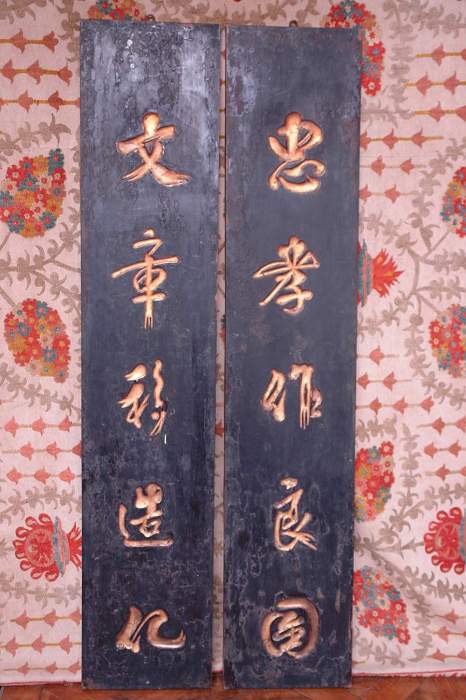 忠孝作良圖
文章移造化